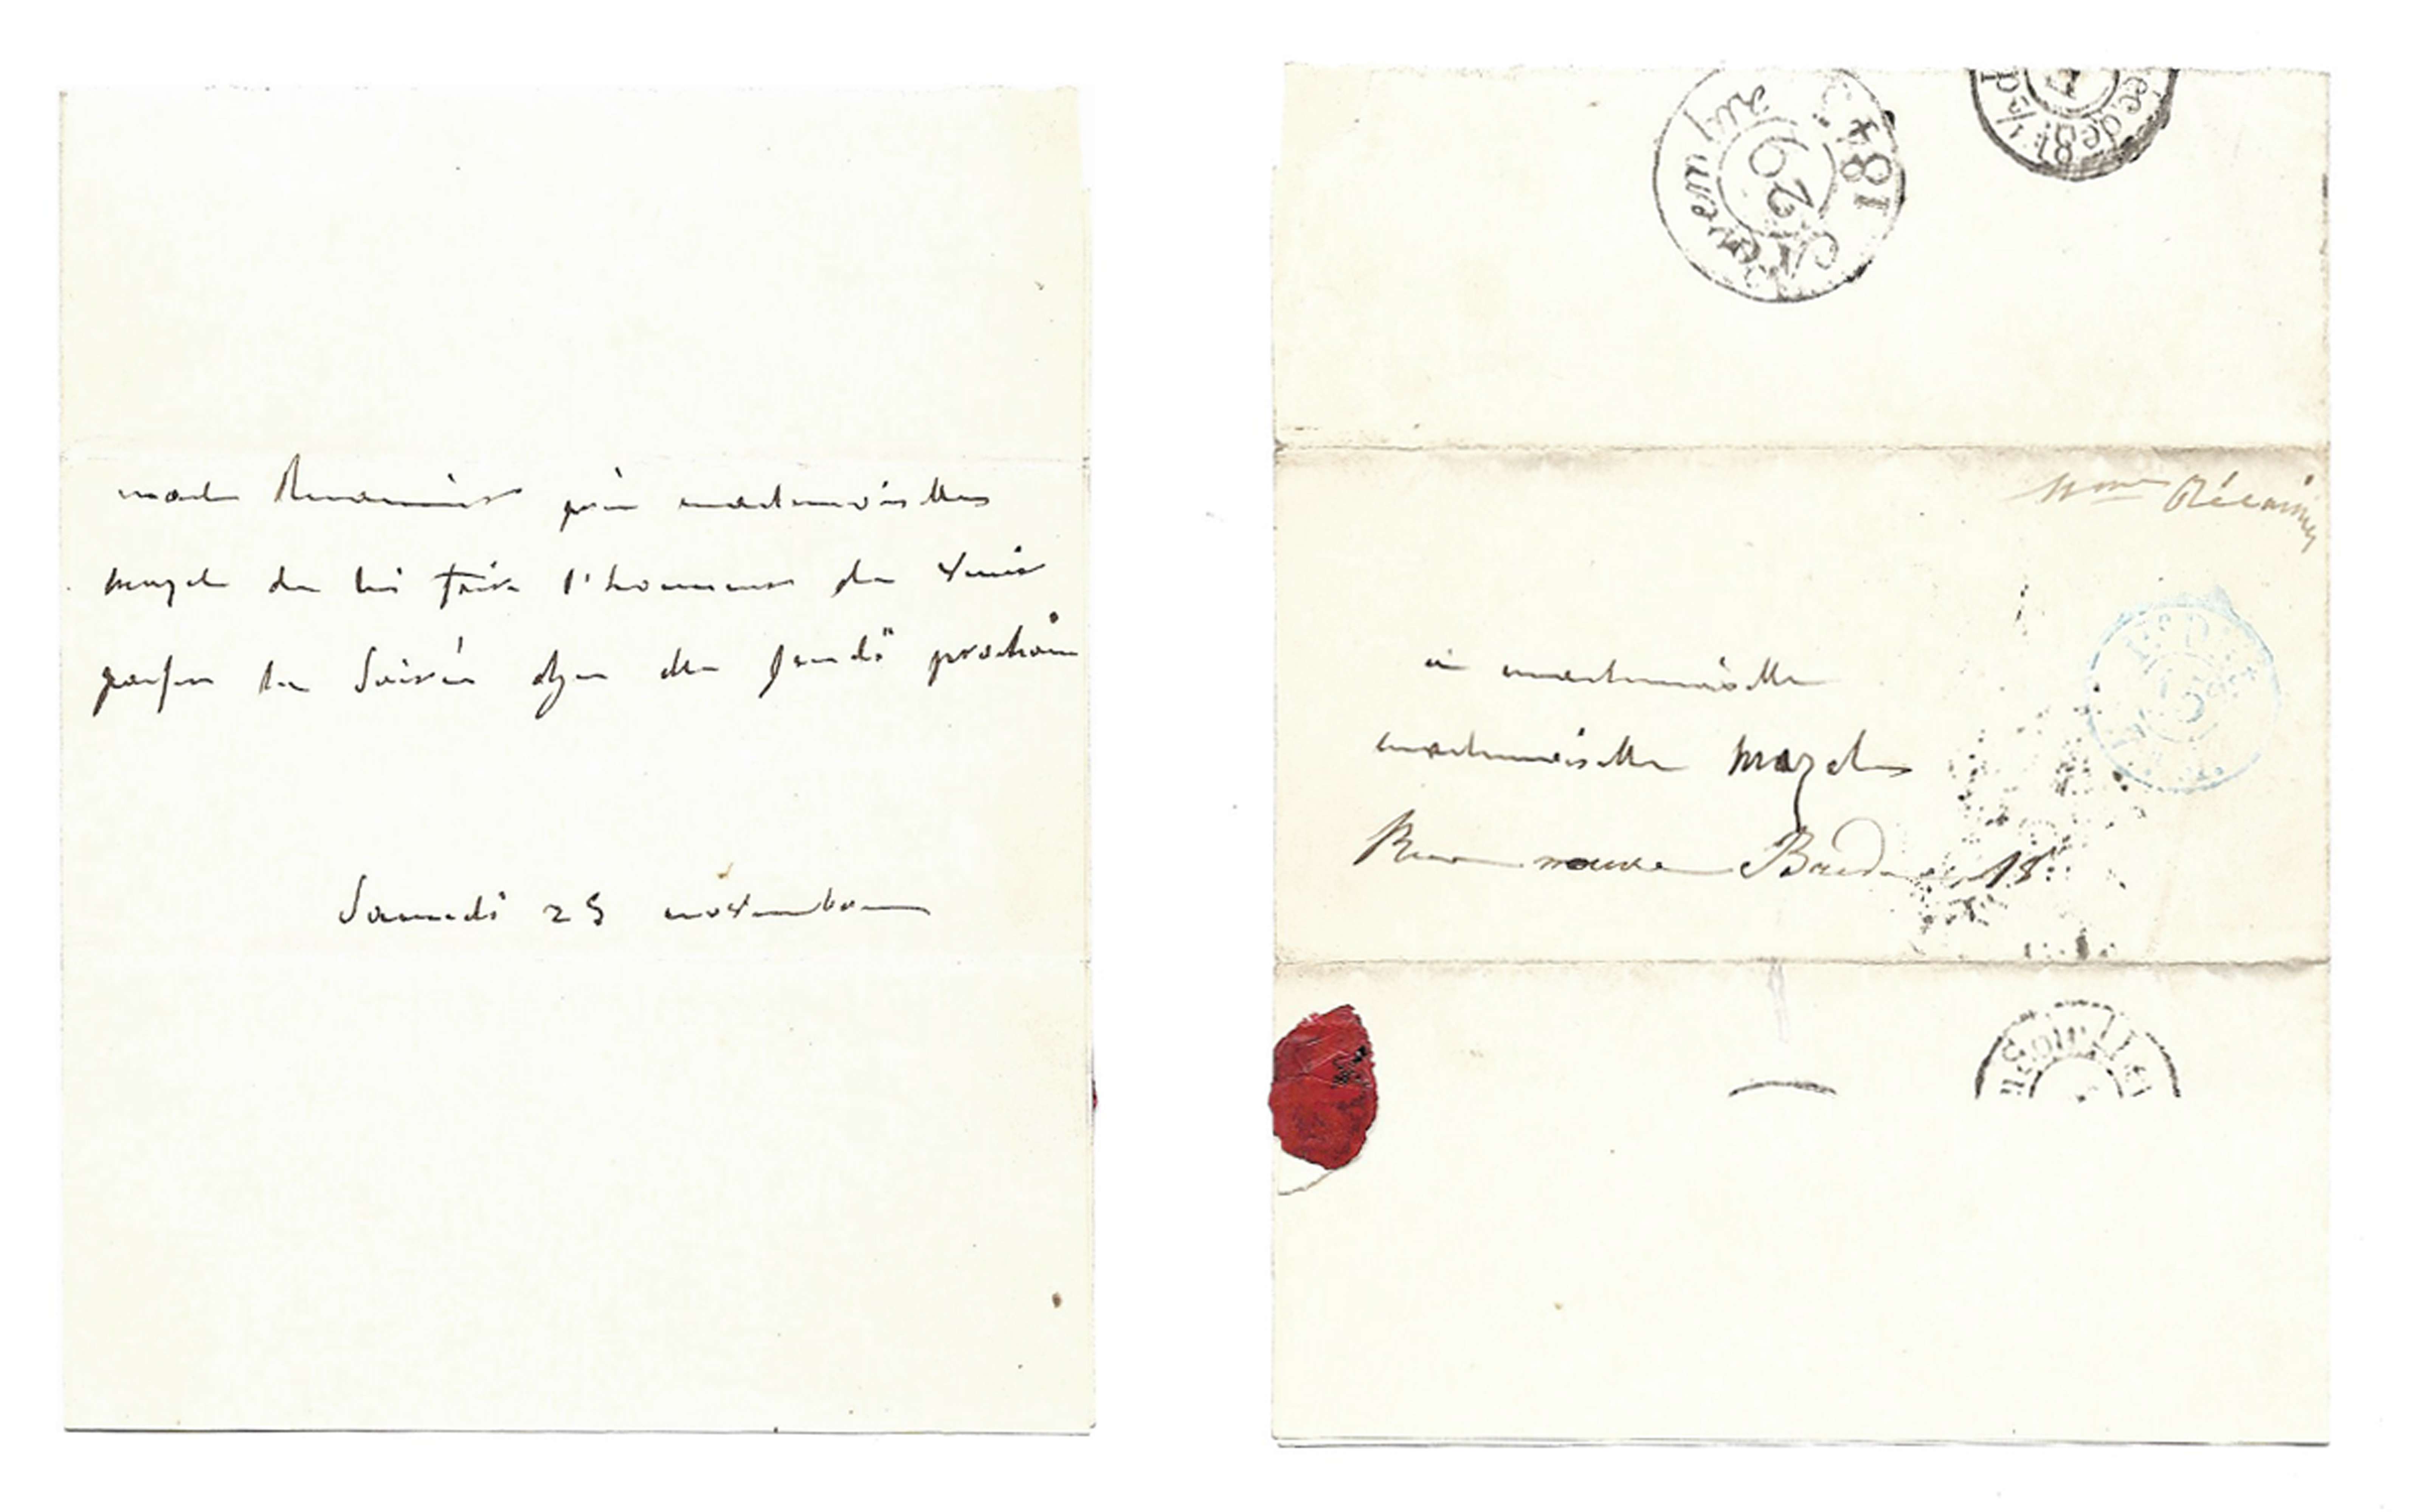 made Récamier prie mesdemoiselles
mazel de lui faire l'honneur de venir
passer la soirée chez elle jeudi prochain
Samedi 25 novembre
Novembre
29
184
Mme Récamier
à mademoiselle
mademoiselle mazel
Rue neuve Breda 18